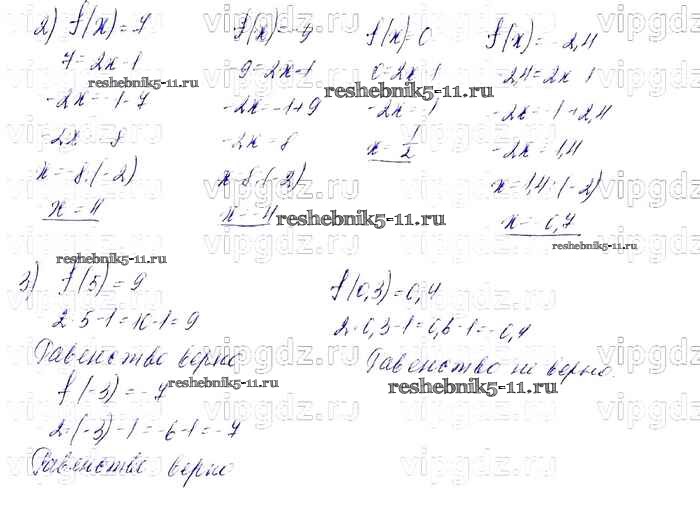 2) f(x)=7
7=2x-1
-2x=-1-7
-2x=-8
x=-8:(-2)
x=4
f(x)=-9
-9=2x-1
-2x=-1+9
-2x=8
x=8:(-2)
x=-4
f(x)=0
0=2x-1
-2x=-1
x=1/2
f(x)=-2,4
-2,4=2x-1
-2x=-1+2,4
-2x=1,4
x=1,4:(-2)
x=-0,7
3) f(5)=9
2·5-1=10-1=9
Равенство верно
f(-3)=-7
2·(-3)-1=-6-1=-7
Равенство верно
f(0,3)=0,4
2·0,3-1=0,6-1=-0,4
Равенство не верно.
reshebnik5-11.ru
reshebnik5-11.ru
reshebnik5-11.ru
reshebnik5-11.ru
reshebnik5-11.ru
reshebnik5-11.ru
reshebnik5-11.ru
vipgdz.ru